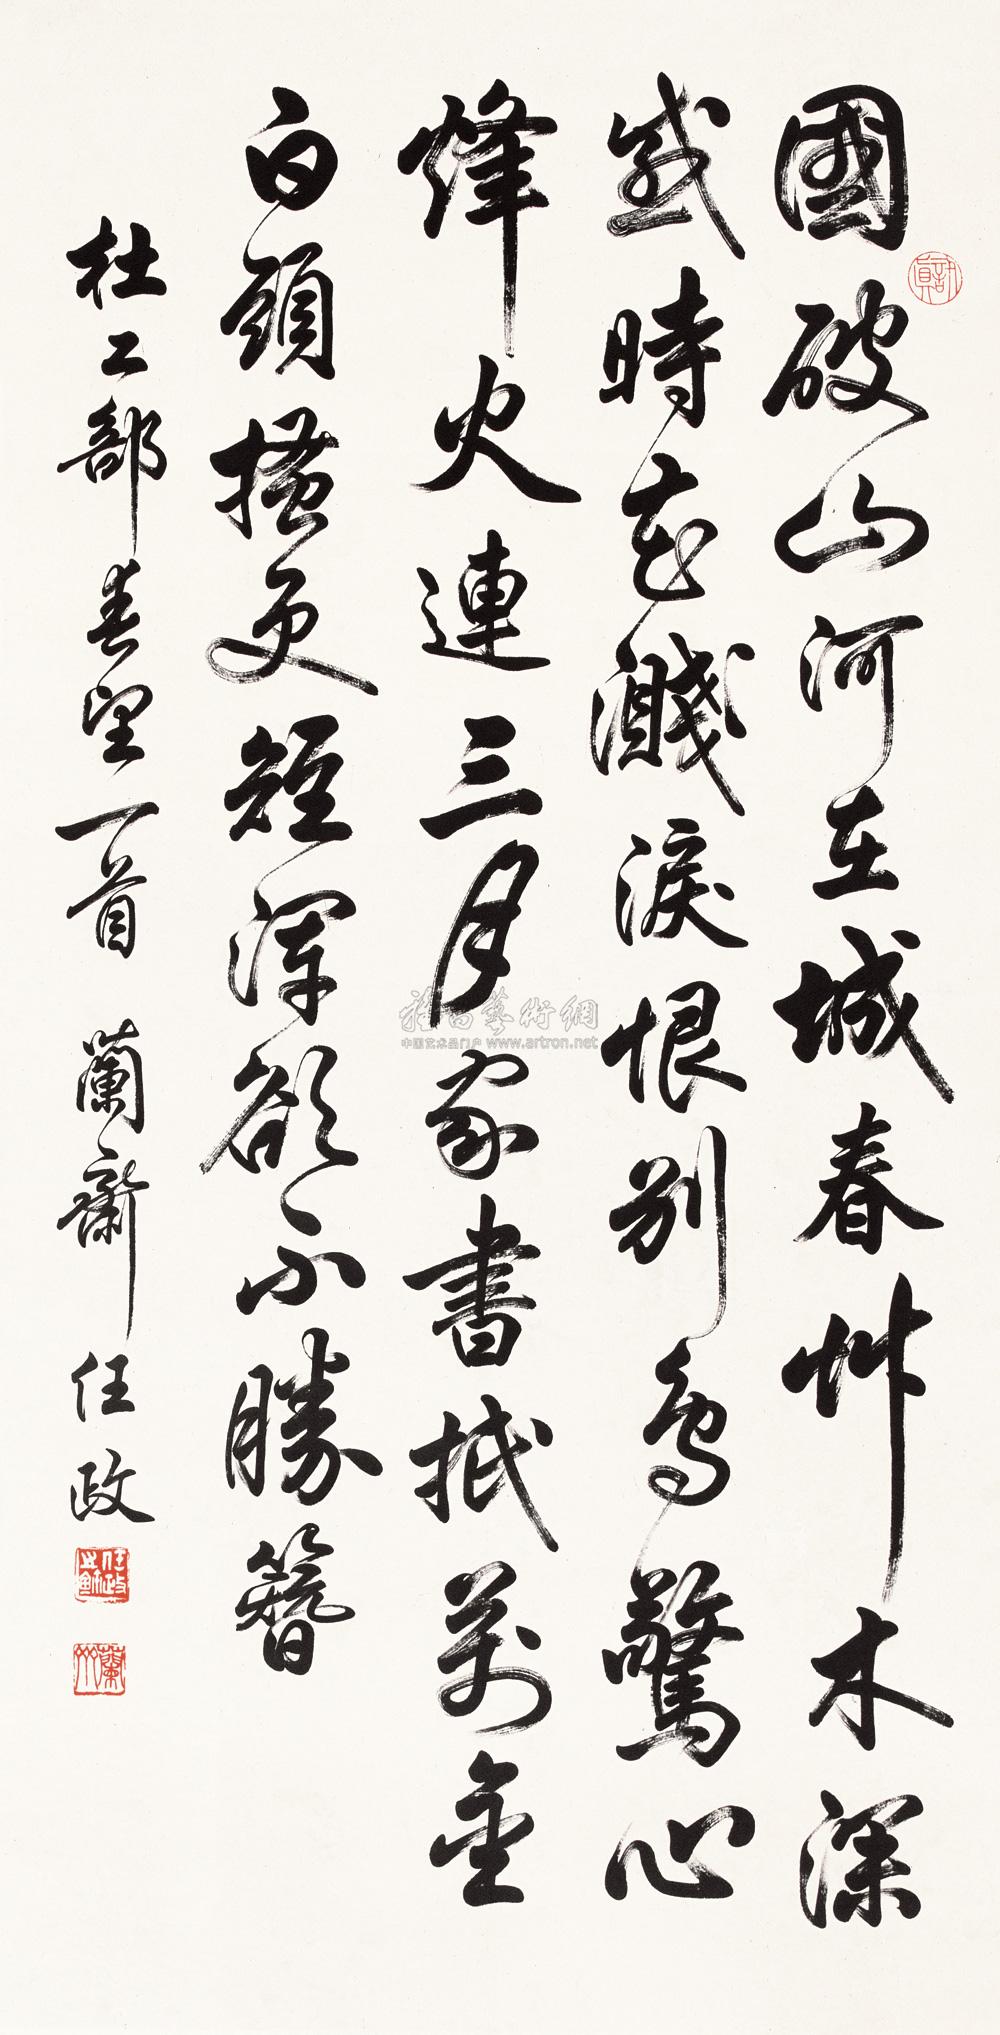 國破山河在城春艸木深
感時花濺淚恨別鳥驚心
烽火連三月家書抵萬金
白頭搔更短渾欲不勝簪
杜工部春望一首 蘭齋 任政
雅昌藝術網
中国艺术品门户 www.artron.net